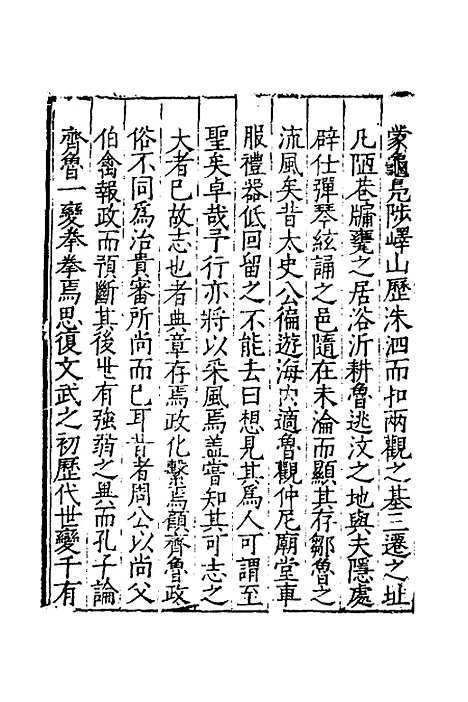 蒙龜鳧陟嶧山歷洙泗而扣兩觀之基三遷之址
凡陋巷牖甕之居浴沂耕魯逃汶之地與夫隱處
辟仕彈琴絃誦之邑隨在未淪而顯其存鄒魯之
流風矣昔太史公徧遊海內適魯觀仲尼廟堂車
服禮器低回留之不能去曰想見其爲人可謂至
聖矣卓哉子行亦將以采風焉盖嘗知其可志之
大者已故志也者典章存焉政化繫焉顧齊魯政
俗不同爲治貴審所尚而已耳昔者周公以尚父
伯禽報政而預斷其後世有強弱之異而孔子論
齊魯一變拳拳焉思復文武之初歷代世變千有